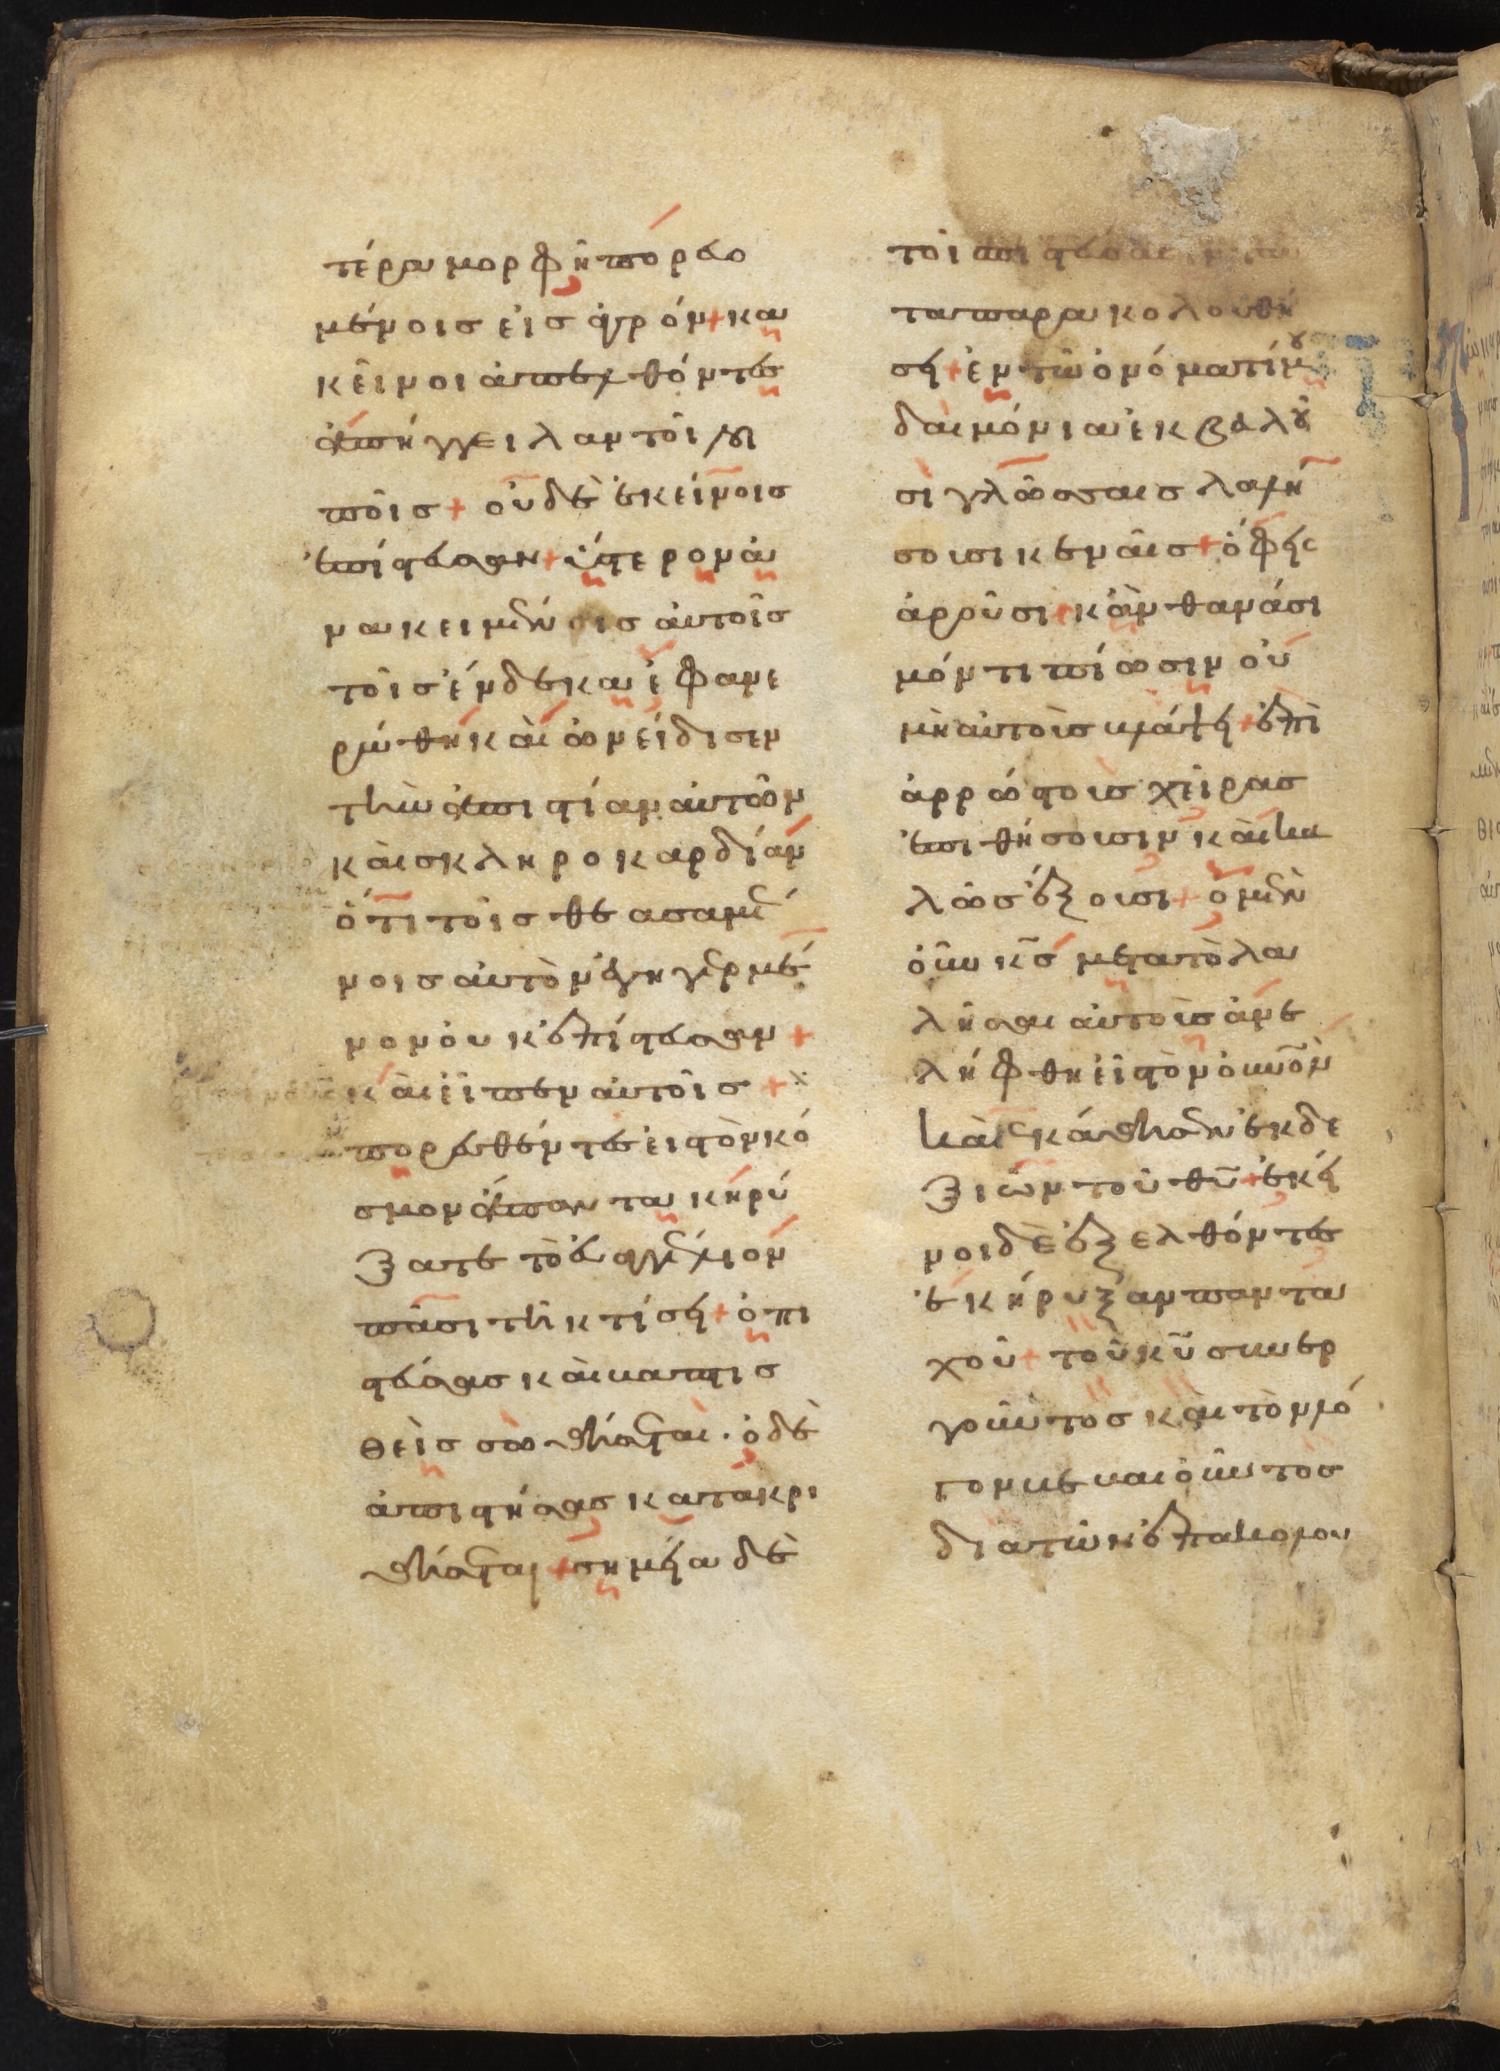 τέρα μορφῆ πορευο
μένοις εἰς ἀγρόν + κα
κεῖνοι ἀπελθόντες
ἀπήγγειλαν τοῖς λοι
ποῖς + οὐδὲ ἐκείνοις
ἐπίστευσαν + ὕστερον ἀ
νακειμένοις αὐτοῖς
τοῖς ἕνδεκα ἐφανε
ρώθη καὶ ὠνείδισεν
τὴν ἀπιστίαν αὐτῶν
καὶ σκληροκαρδίαν
ὅτι τοῖς θεασαμέ
νοις αὐτὸν ἐγηγερμέ
νον οὐκ ἐπίστευσαν +
καὶ εἶπεν αὐτοῖς +
πορευθέντες εἰς τὸν κό
σμον ἅπαντα κηρύ
ξατε τὸ εὐαγγέλιον
πᾶσι τῆ κτίσει + ὁ πι
στεύσας καὶ βαπτισ
θεὶς σωθήσεται · ὁ δὲ
ἀπιστήσας κατακρι
θήσεται + σημεῖα δὲ
τοῖς πιστεύσασιν ταῦ
τα παρακολουθή
σει + ἐν τῶ ὀνόματί μου
δαιμόνια ἐκβαλοῦ
σι γλώσσαις λαλή
σουσι καιναῖς + ὄφεις
ἀροῦσι + κἂν θανάσι
μόν τι πίωσιν οὐ
μὴ αὐτοὺς βλάψει + ἐπὶ
ἀρρώστους χεῖρας
ἐπιθήσουσιν καὶ κα
λῶς ἕξουσι + ὁ μὲν
οὖν κς μετὰ τὸ λα
λῆσαι αὐτοῖς ἀνε
λήφθη εἰς τὸν οὐνον
καὶ ἐκάθησεν ἐκ δε
ξιῶν τοῦ θυ + ἐκεῖ
νοι δὲ ἐξελθόντες
ἐκήρυξαν πανταν
χοῦ + τοῦ κυ συνερ
γοῦντος καὶ τὸν λό
γον βεβαιοῦντος
διὰ τῶν ἐπακολου